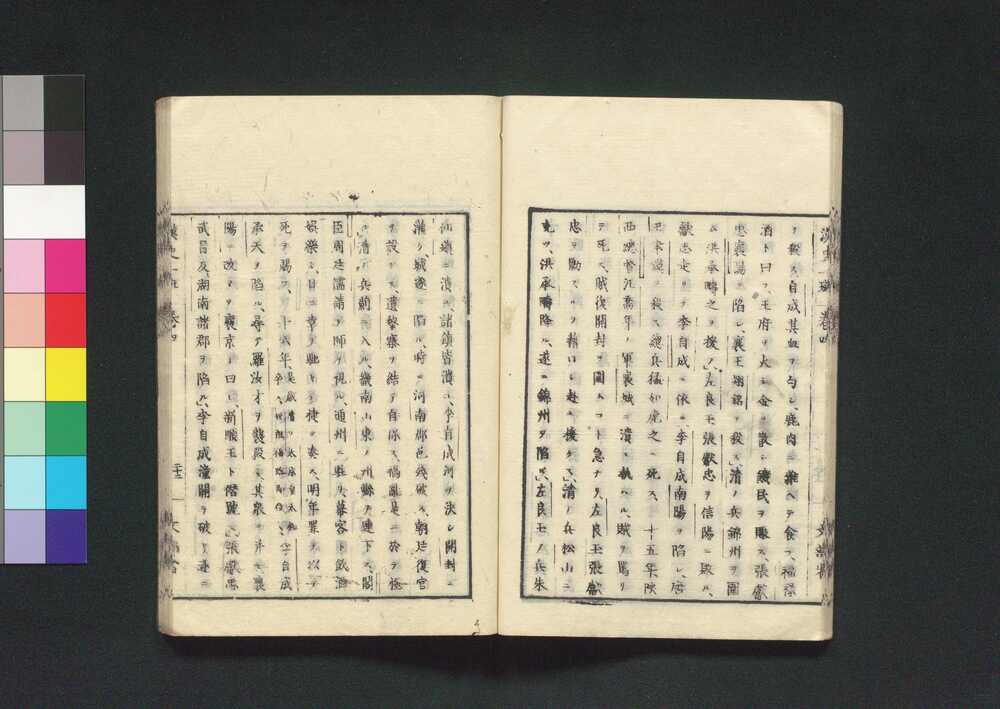 ヲ殺ス自成其血ヲ勺シ鹿肉ニ雜ヘテ食フ福祿
酒ト曰フ王府ヲ火シ金ヲ散シ饑民ヲ賑ス張獻
忠襄陽ヲ陷レ襄王翊銘ヲ殺ス清ノ兵錦州ヲ圍
ム洪承疇之ヲ援フ左良玉張獻忠ヲ信陽ニ敗ル
獻忠走リテ李自成ニ依ル李自成南陽ヲ陷レ唐
王聿鏌ヲ殺ス總兵猛如虎之ニ死ス十五年陝
西總督汪喬年ノ軍襄城ニ潰エ執ヘラル賊ヲ罵リ
テ死ス賊復開封ヲ圍ムコト急ナリ左良玉張獻
忠ヲ勦スルヲ藉口シ赴キ援ケズ清ノ兵松山ニ
克ツ洪承疇降ル遂ニ錦州ヲ陷ル左良玉ノ兵朱
仙鎮ニ潰ユ諸鎮皆潰ユ李自成河ヲ決シ開封ニ
灌ク城遂ニ陷ル時ニ河南郡邑殘破シ朝廷復官
ヲ設ケズ遺黎寨ヲ結テ自保ス禍亂是ニ於テ極
ル清ノ兵薊ニ入ル畿南山東ノ州縣ヲ連下ス閣
臣周廷儒請テ師ヲ視ル通州ニ駐リ幕客ト飮酒
娛樂シ日ニ章ヲ馳セテ捷ヲ奏ス明年罪ヲ以テ
死ヲ賜フ十六年李自成
承天ヲ陷ル尋テ羅汝才ヲ襲殺シ其衆ヲ并ス襄
陽ヲ改メテ襄京ト曰ヒ新順王ト僭號ス張獻忠
武昌及湖南諸郡ヲ陷ル李自成潼關ヲ破リ遂ニ
卷四